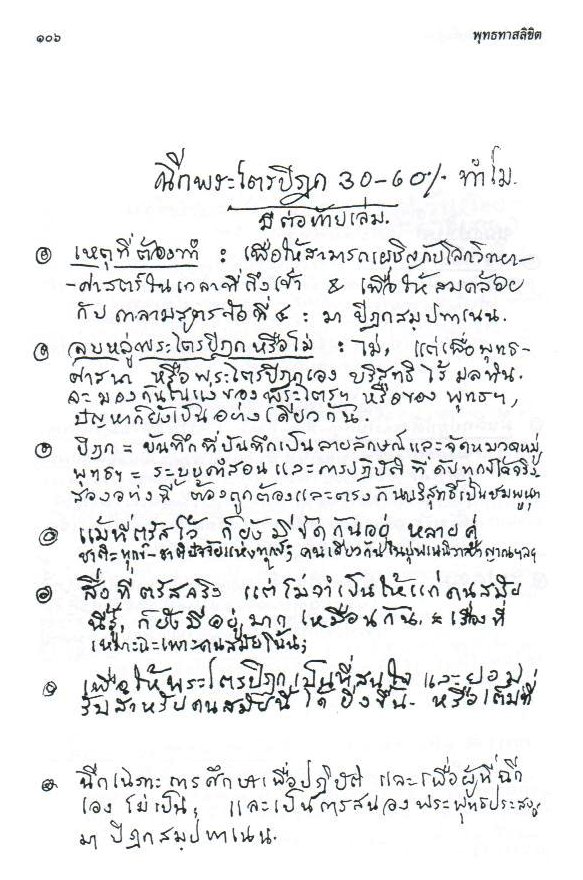 ๑๐๖ พุทธทาสลิขิต
ฉีกพระไตรปิฎก 30-60% ทำไม.
มีต่อท้ายเล่ม.
เหตุที่ต้องทำ : เพื่อให้สามารถเผชิญกับโลกวิทยา-
-ศาสตร์ในเวลาที่ถึงเข้า & เพื่อให้สมคล้อย
กับ กาลามสูตรข้อที่ ๔ : มา ปิฎกสมฺปทาเนน.
ลบหลู่พระไตรปิฎกหรือไม่ : ไม่, แต่เพื่อพุทธ-
ศาสนา หรือพระไตรปิฎกเอง บริสุทธิ์ ไร้ มลทิน.
จะมองกันในแง่ของ พระไตรฯ หรือของ พุทธฯ,
ปัญหาก็ยังเป็นอย่างเดียวกัน.
ปิฎก = บันทึกที่บันทึกเป็นลายลักษณ์ และจัดหมวดหมู่
พุทธฯ = ระบบคำสอน และการปฏิบัติ ที่ดับทุกข์ได้จริง
สองอย่างนี้ ต้องถูกต้องและตรงกันบริสุทธิ์เป็น
แม้ที่ตรัสไว้ ก็ยังมีขัดกันอยู่ หลายคู่
สิ่งที่ตรัสจริง แต่ไม่จำเป็นให้แก่คนสมัย
นี้รู้, ก็ยังมีอยู่มาก เหมือนกัน. = เรื่องที่
เหมาะเฉพาะคนสมัยโน้น;
เพื่อให้พระไตรปิฎกเป็นที่สนใจ และยอม
รับสำหรับคนสมัยนี้ ได้ ยิ่งขึ้น. หรือเต็มที่
ฉีกเฉพาะ การศึกษาเพื่อปฏิบัติ และเพื่อผู้ที่ฉีก
เองไม่เป็น, และเป็นการสนองพระพุทธประสงค์
มา ปิฎกสมฺปทาเนน.